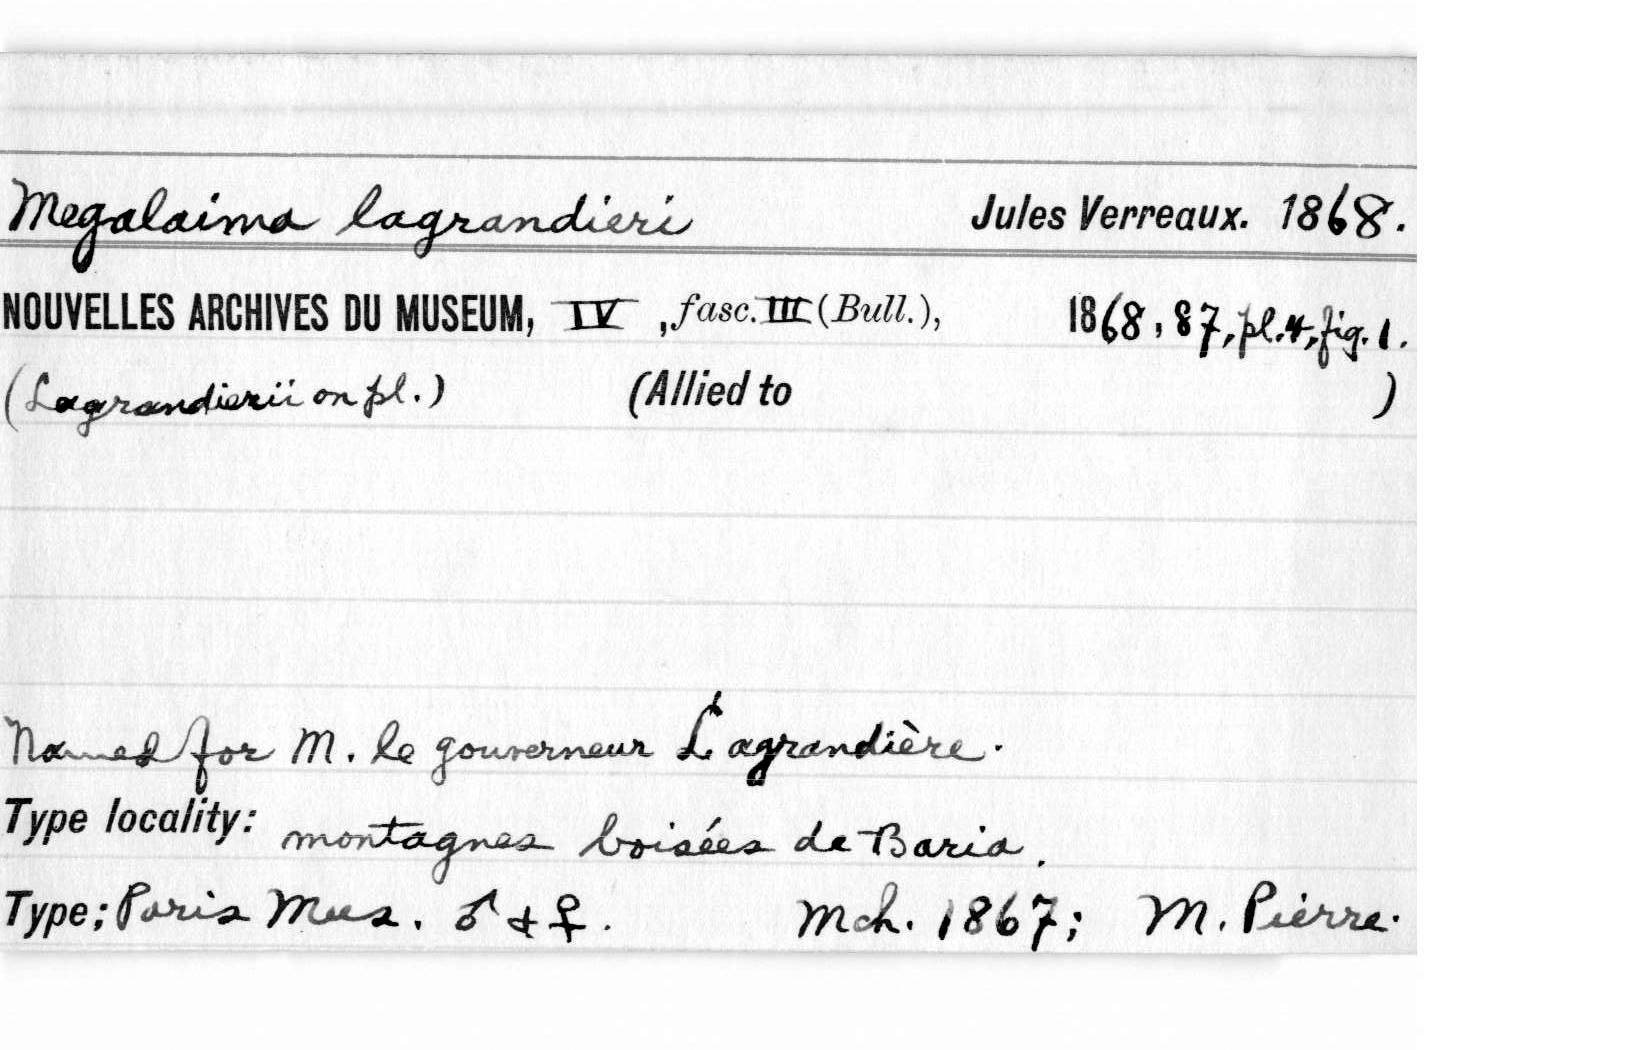 Megalaima lagrandieri Jules Verreaux. 1868.
NOUVELLES ARCHIVES DU MUSEUM, IV , fasc. III (Bull.), 1868, 87, pl.4, fig. 1.
(Lagrandierii on pl.) (Allied to )
Named for M. le gouverneur Lagrandière.
Type locality: montagnes boisées de Baria.
Type; Paris Mus. ♂ + ♀. Mch. 1867; M. Pierre.